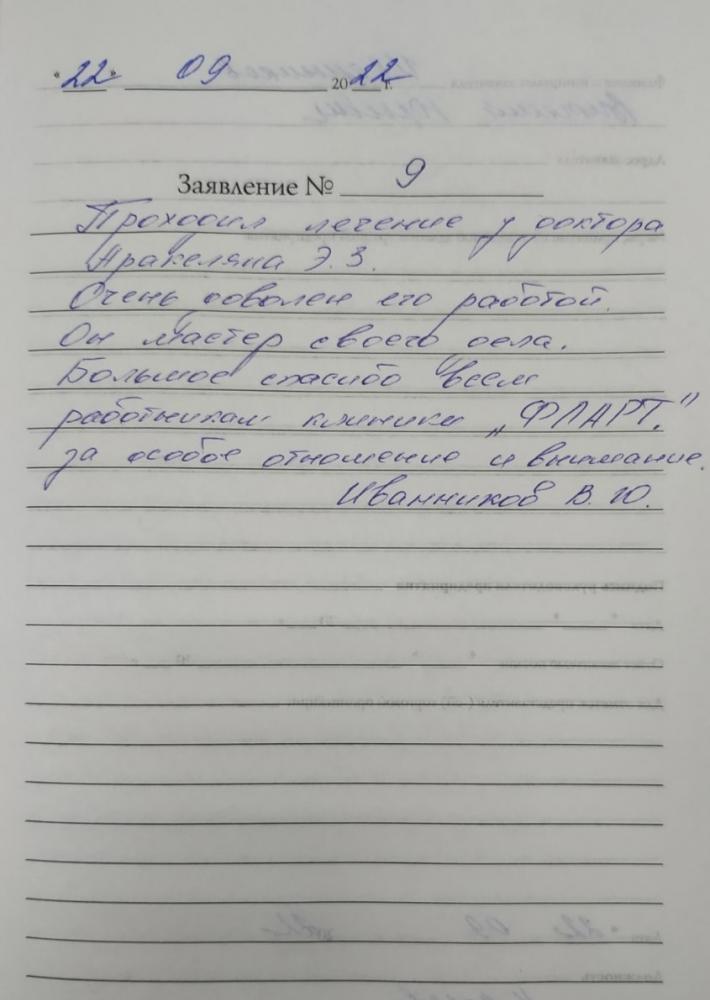 "22" 09 2022 г.
Заявление № 9
Проходил лечение у доктора
Аракеляна Э. З.
Очень доволен его работой.
Он мастер своего дела.
Большое спасибо всем
работникам клиники „ФЛАРТ."
за особое отношение и внимание.
Иванников В. Ю.